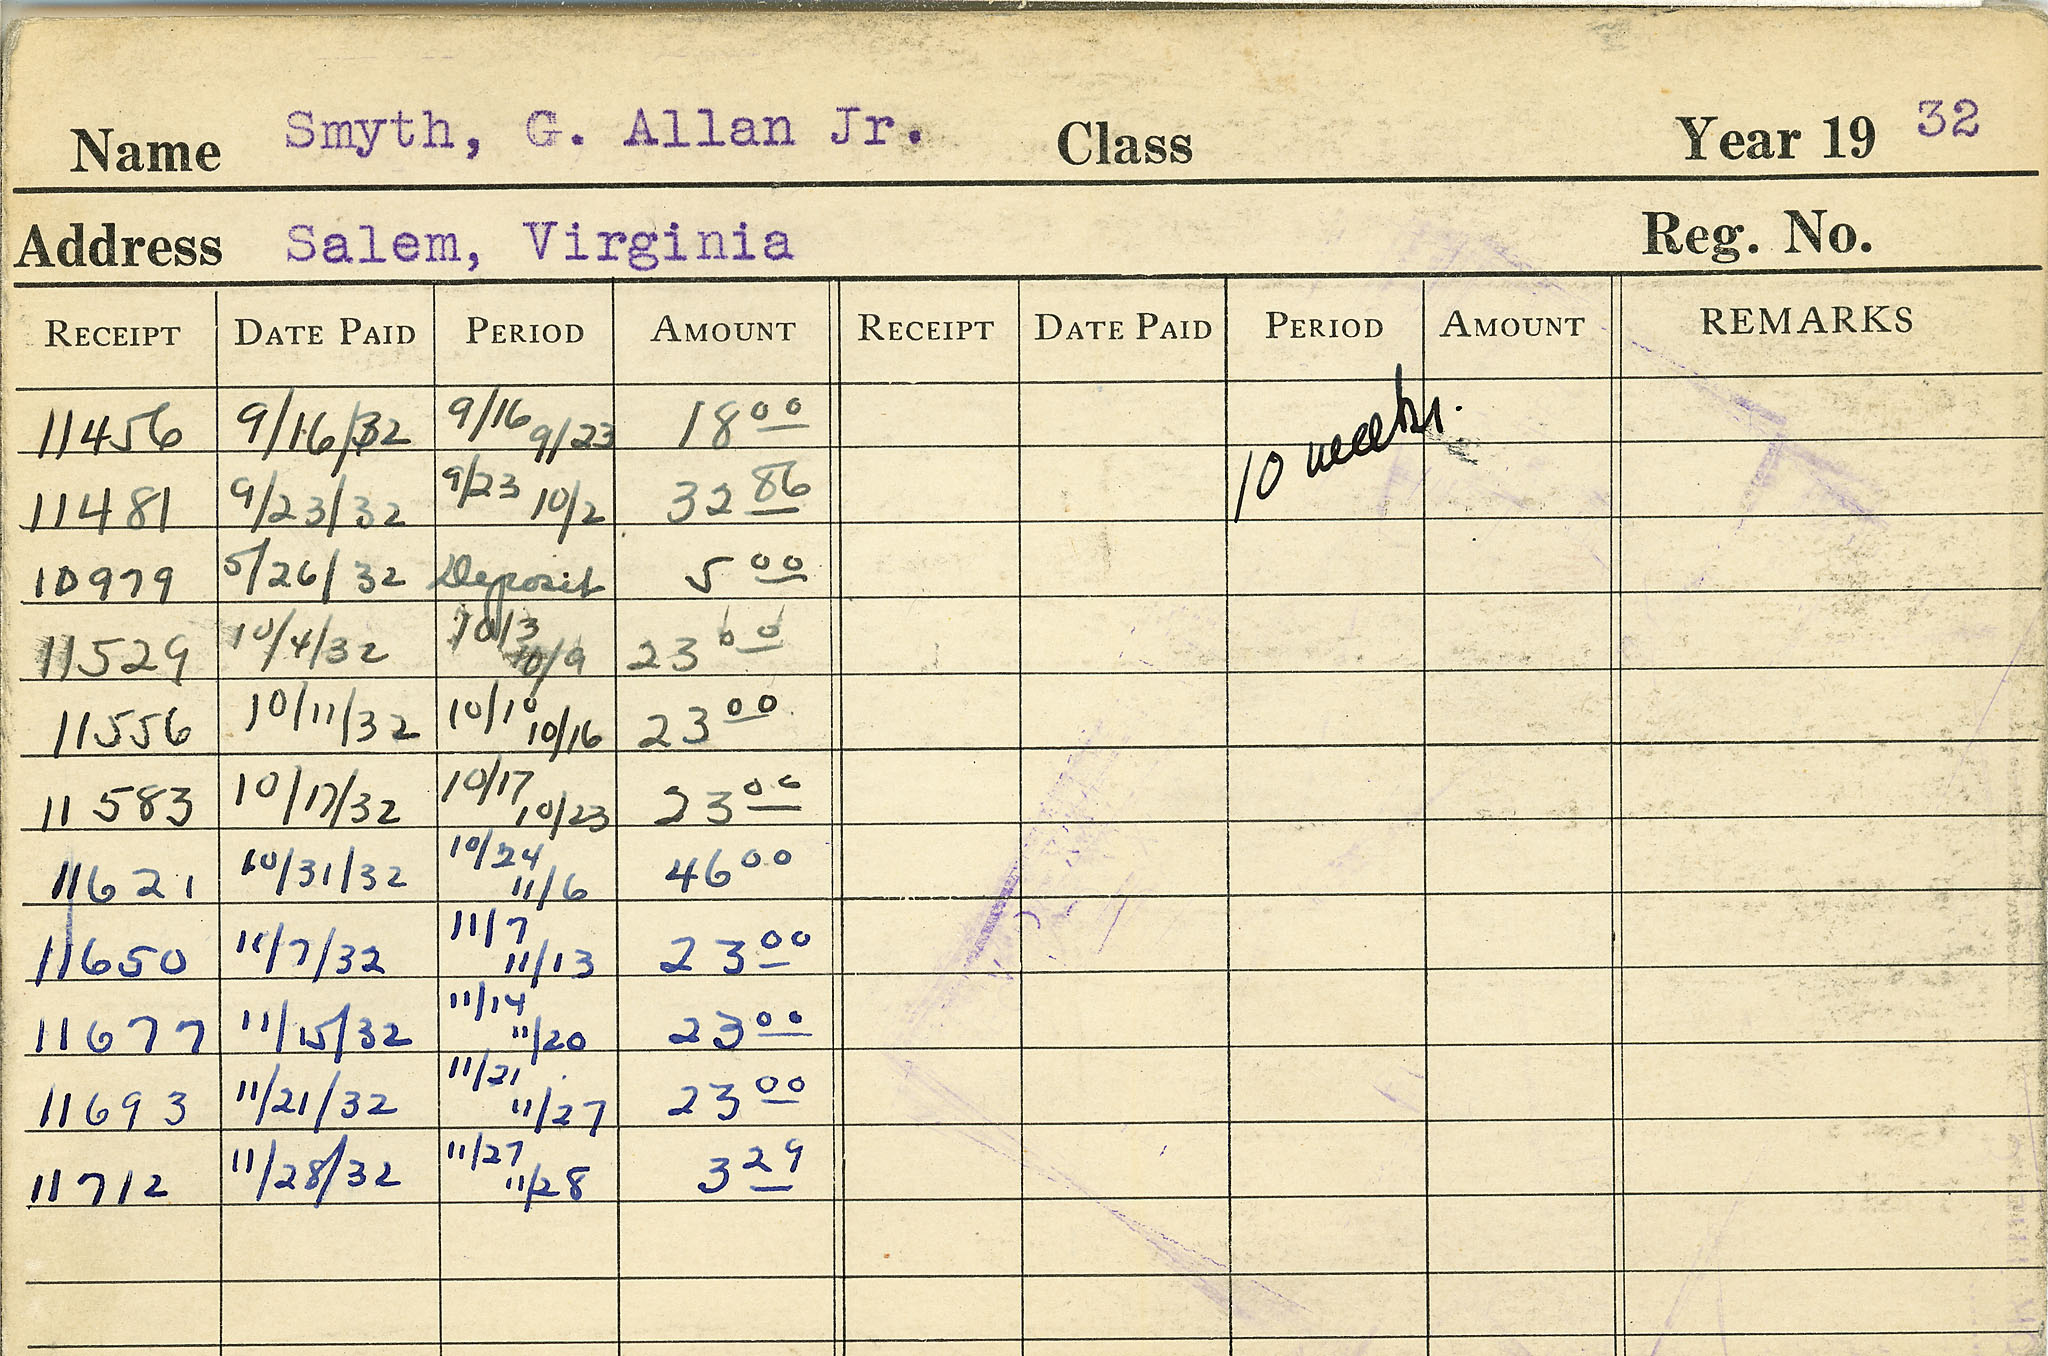 Name Smyth, G. Allan Jr. Class Year 19 32
Address Salem, Virginia Reg. No.
RECEIPT DATE PAID PERIOD AMOUNT RECEIPT DATE PAID PERIOD AMOUNT REMARKS
11456 9/16/32 9/16 9/23 18 00
10 weeks.
11481 9/23/32 9/23 10/2 32 86
10979 5/26/32 Deposit 5 00
11529 10/4/32 10/3 10/9 23 00
11556 10/11/32 10/10 10/16 23 00
11583 10/17/32 10/17 10/23 23 00
11621 10/31/32 10/24 11/6 46 00
11650 11/7/32 11/7 11/13 23 00
11677 11/15/32 11/14 11/20 23 00
11693 11/21/32 11/21 11/27 23 00
11712 11/28/32 11/27 11/28 3 29